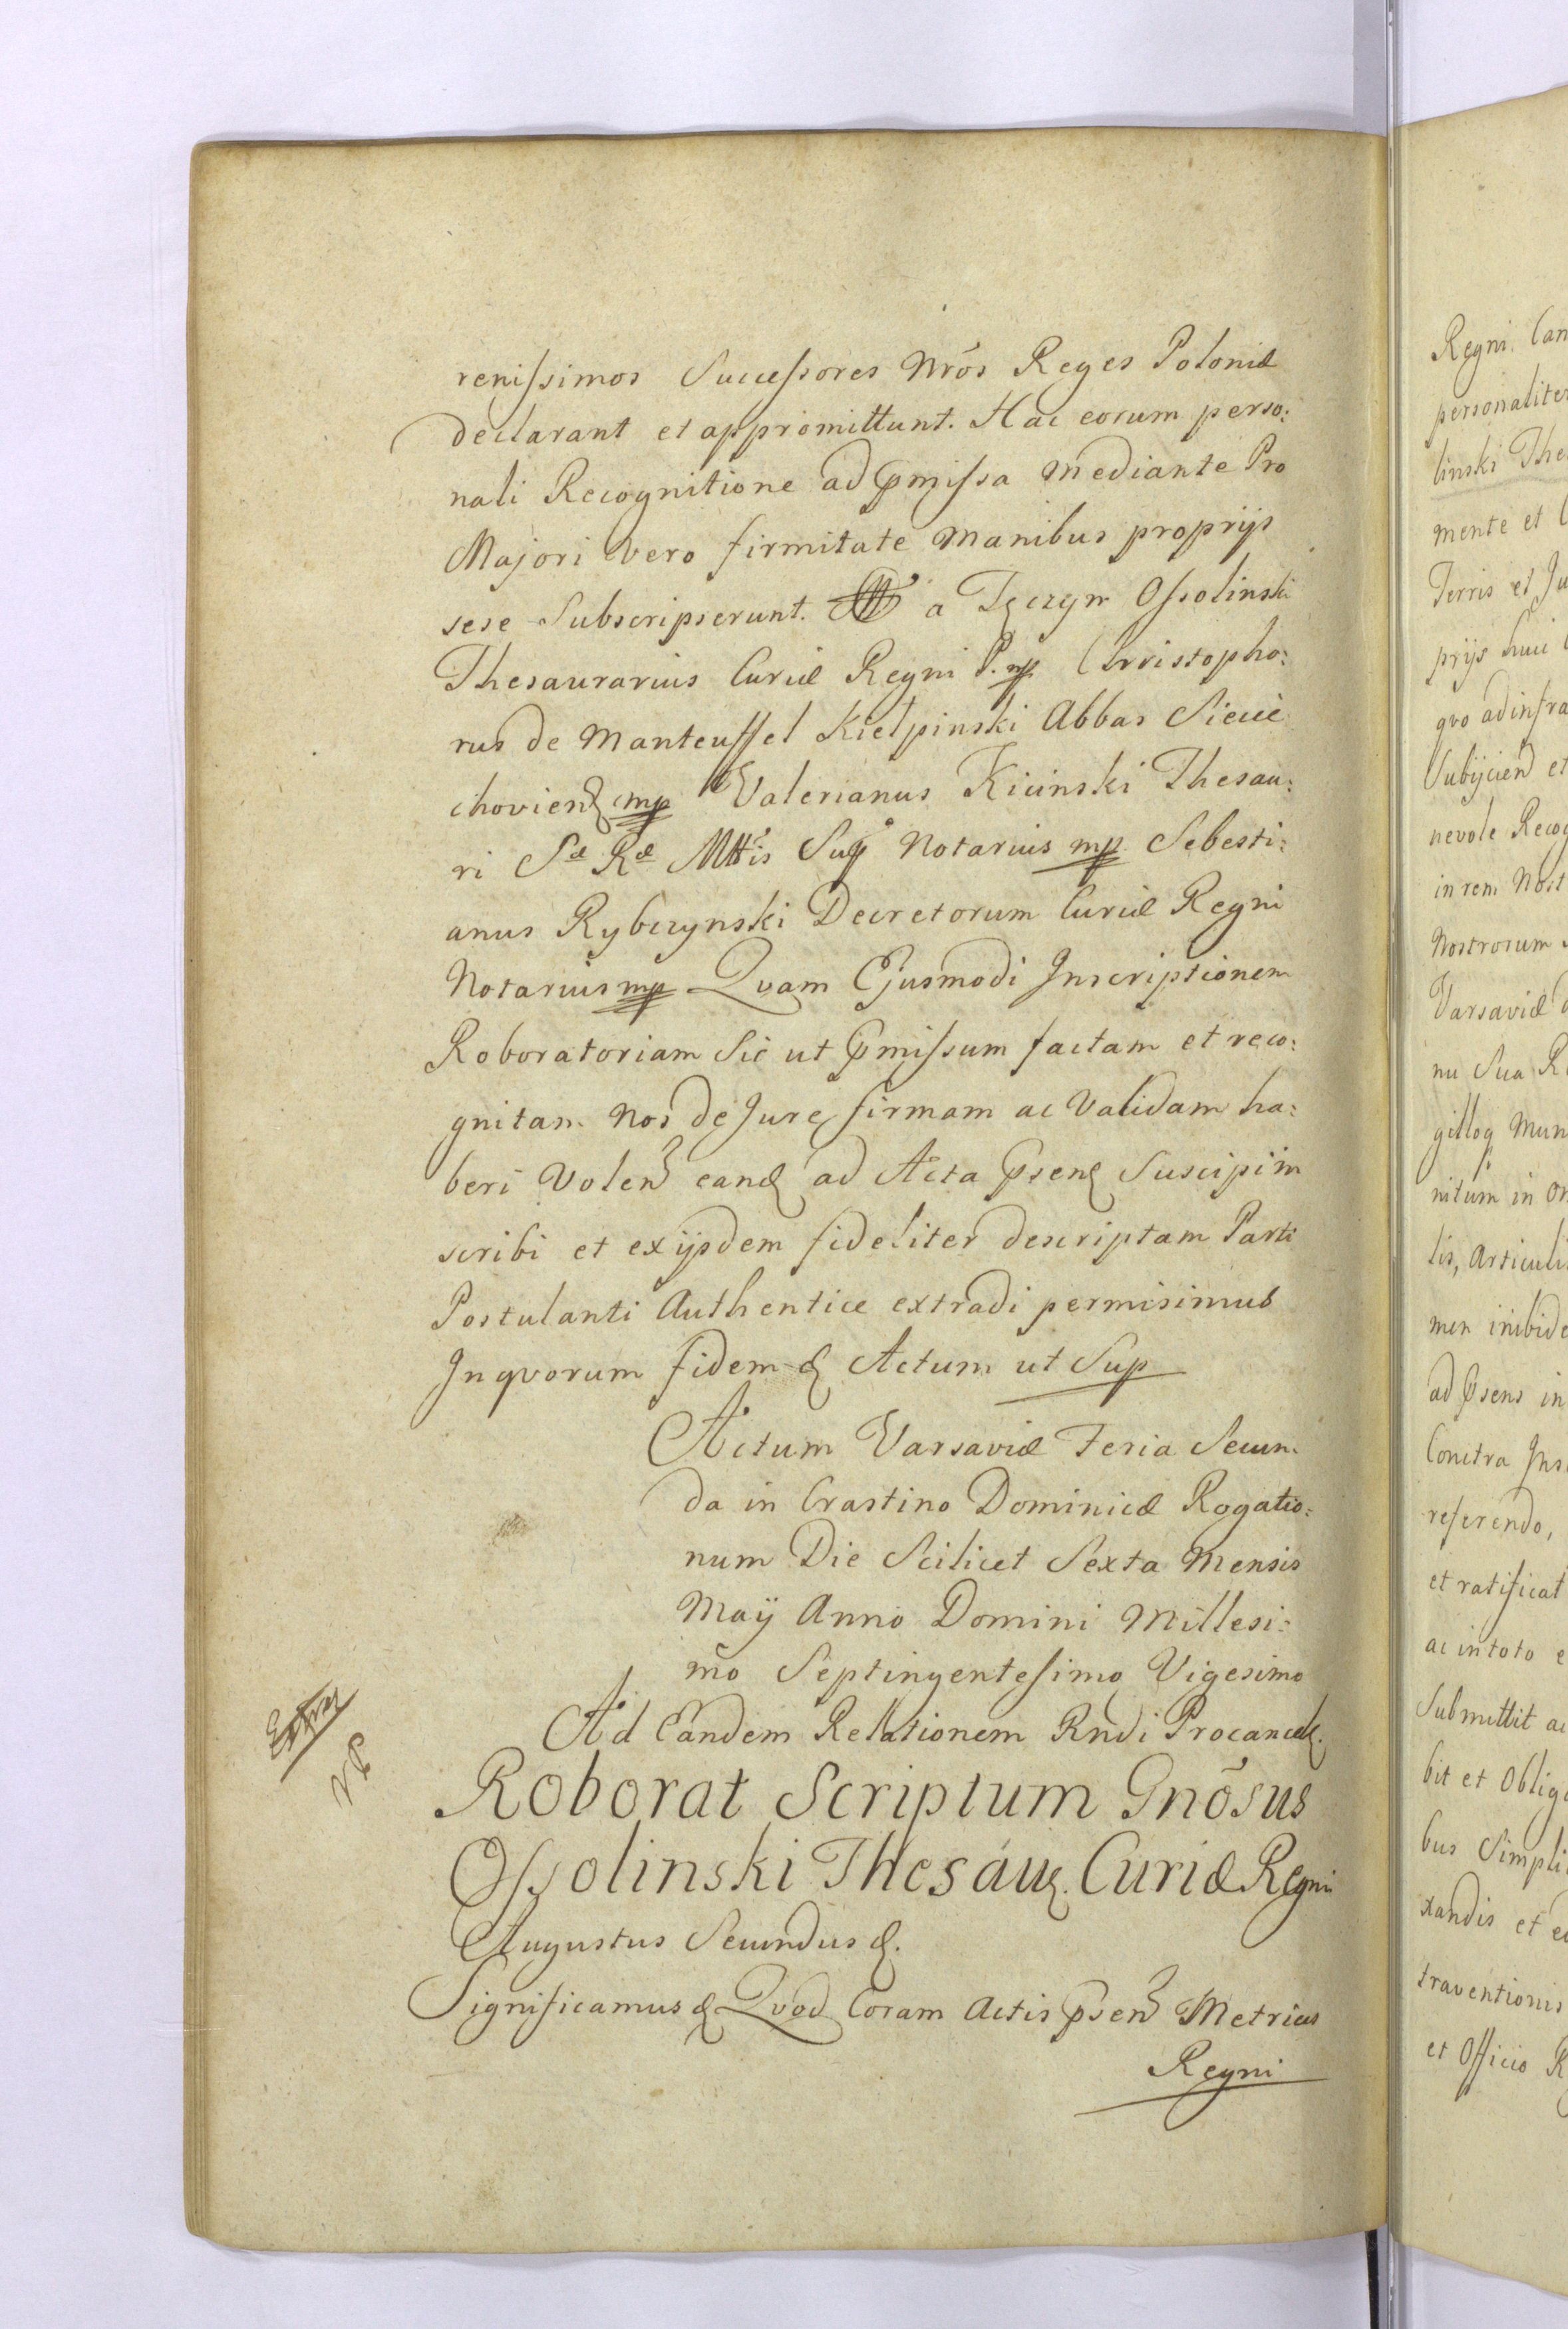 renissimos Successores Nrōs Reges Poloniæ
declarant et appromittunt. Hac eorum perso:
nali Recognitione ad pmissa mediante Pro
Majori vero firmitate Manibus proprijs
sese Subscripserunt. a Tęczyn Ossolinski
Thesaurarius Curiæ Regni P. mp Christopho:
rus de Manteuffel Kielpinski Abbas Siecie
choviens mp Valerianus Kicinski Thesau:
ri Sæ Ræ Mttis Notarius mp Sebesti:
anus Rybczynski Decretorum Curiæ Regni
Notarius mp Qvam Ejusmodi Inscriptionem
Roboratoriam Sic ut pmissum factam et reco:
gnitam Nos de Jure firmam ac Validam ha:
beri Volen eand ad Acta psen Suscipi in
scribi et exijsdem fideliter descriptam Parti
Postulanti Authentice extradi permisimus
In qvorum fidem & Actum ut Sup
Actum Varsaviæ Feria Secun
da in Crastino Dominicæ Rogatio:
num Die Scilicet Sexta Mensis
Maÿ Anno Domini Millesi:
mo Septingentesimo Vigesimo
Ad Eandem Relationem Rndi Procancel.
Roborat Scriptum Gnōsus
Ossolinski Thesau. Curiæ Regni
Augustus Secundus &.
Significamus & Qvod Coram Actis psen Metrices
Regni
Regni Can
personaliter
linski The
mente et
Terris et Ju
prijs huic
qvo ad infra
Subijcien et
nevole Recog
in rem Nost
Nostrorum
Varsaviæ
nu Sua R
gilloq Mun
nitum in
lis, Articuli
men inibide
ad psens in
Contra Ins
referendo,
et ratificat
ac in toto e
Submittit ac
bit et Oblig
bus Simpli
xandis et e
traventionis
et Officio R